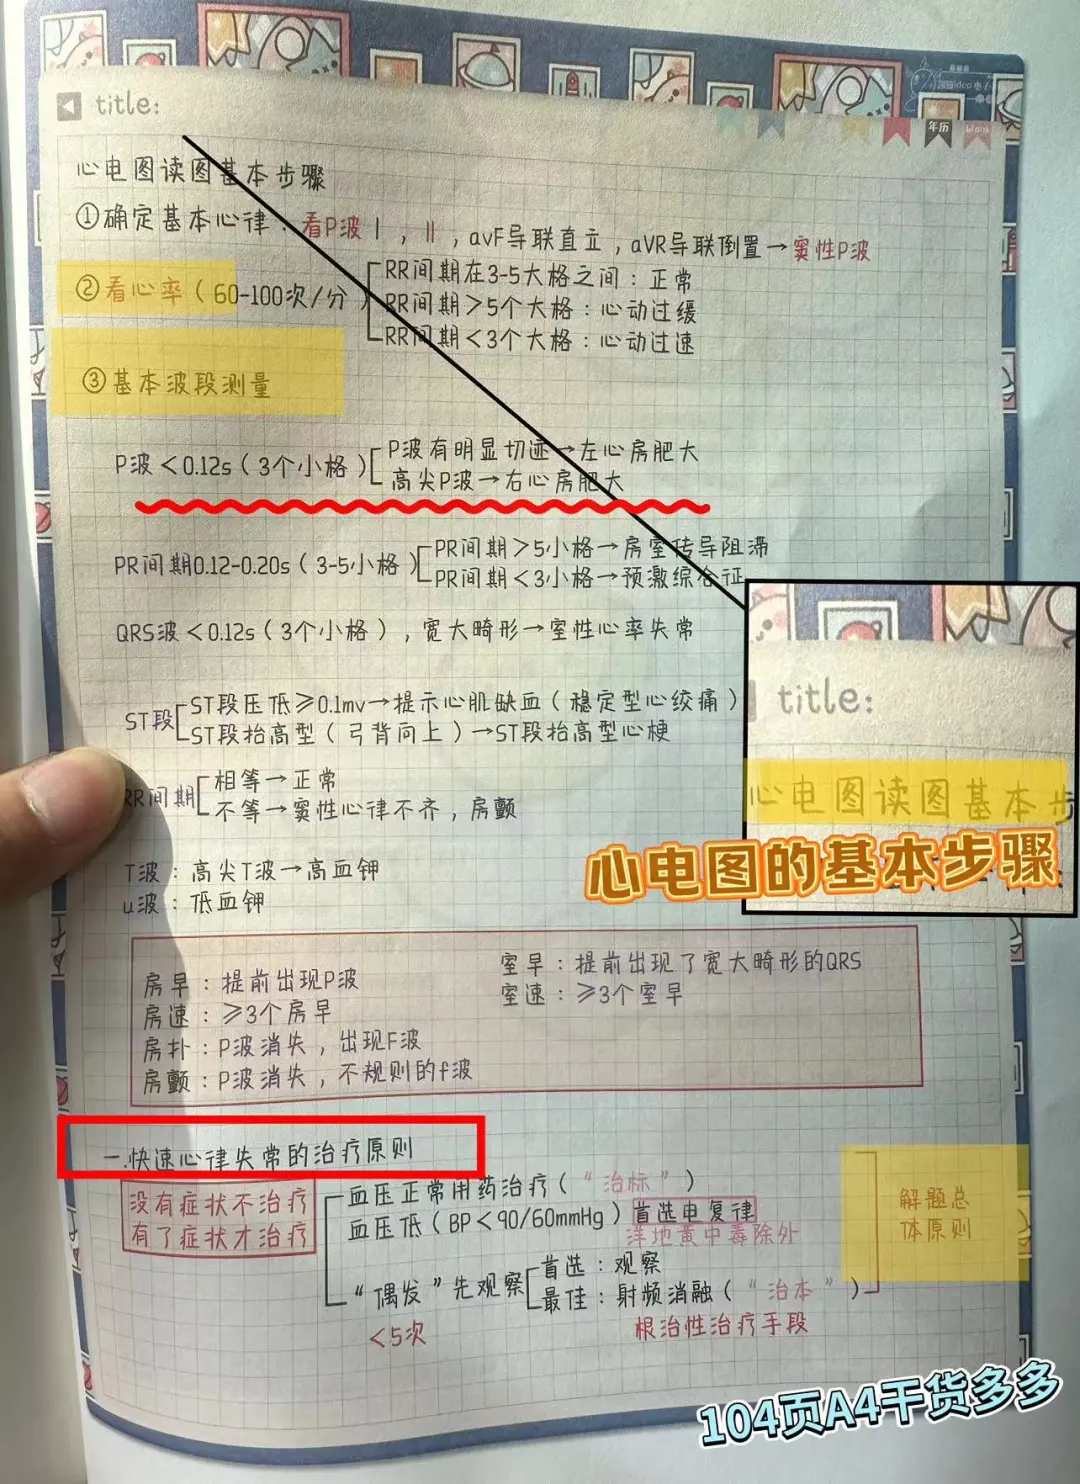 title:
年历
blank
心电图读图基本步骤
①确定基本心律：看P波Ⅰ，Ⅱ，avF导联直立，aVR导联倒置→窦性P波
②看心率（60-100次/分）
RR间期在3-5大格之间：正常
RR间期＞5个大格：心动过缓
RR间期＜3个大格：心动过速
③基本波段测量
P波＜0.12s（3个小格）
P波有明显切迹→左心房肥大
高尖P波→右心房肥大
PR间期0.12-0.20s（3-5小格）
PR间期＞5小格→房室传导阻滞
PR间期＜3小格→预激综合征
QRS波＜0.12s（3个小格），宽大畸形→室性心率失常
ST段
ST段压低≥0.1mv→提示心肌缺血（稳定型心绞痛）
ST段抬高型（弓背向上）→ST段抬高型心梗
RR间期
相等→正常
不等→窦性心律不齐，房颤
T波：高尖T波→高血钾
u波：低血钾
title:
心电图读图基本步
心电图的基本步骤
房早：提前出现P波
房速：≥3个房早
房扑：P波消失，出现F波
房颤：P波消失，不规则的f波
室早：提前出现了宽大畸形的QRS
室速：≥3个室早
一.快速心律失常的治疗原则
没有症状不治疗
有了症状才治疗
血压正常用药治疗（“治标”）
血压低（BP＜90/60mmHg）首选电复律
洋地黄中毒除外
“偶发”先观察
＜5次
首选：观察
最佳：射频消融（“治本”）
根治性治疗手段
解题总
体原则
104页A4干货多多